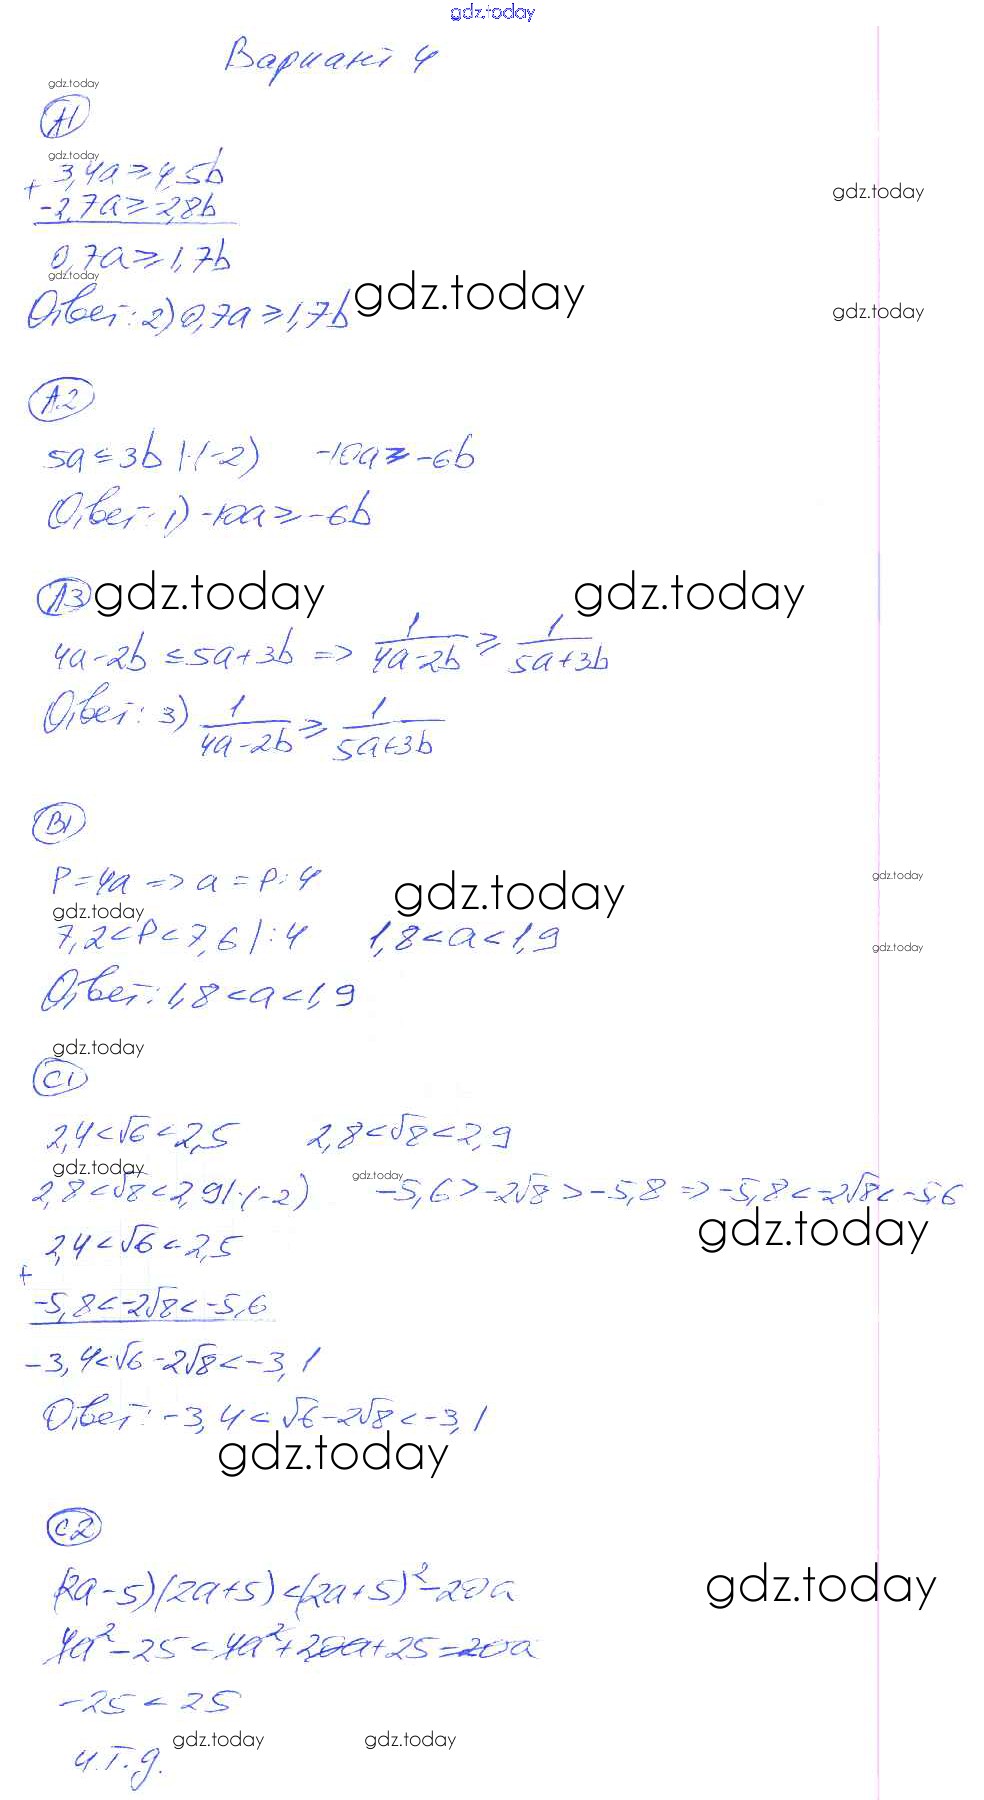 gdz.today
Вариант 4
gdz.today
А1
gdz.today
3,4a ≥ 4,5b
+
-2,7a ≥ -2,8b
gdz.today
0,7a ≥ 1,7b
gdz.today
Ответ: 2) 0,7a ≥ 1,7b
gdz.today
gdz.today
А2
5a ≤ 3b |·(-2) -10a ≥ -6b
Ответ: 1) -10a ≥ -6b
А3
gdz.today gdz.today
4a-2b ≤ 5a+3b => 1/(4a-2b) ≥ 1/(5a+3b)
Ответ: 3) 1/(4a-2b) ≥ 1/(5a+3b)
В1
P=4a => a = P:4
gdz.today gdz.today
gdz.today
7,2<P<7,6 |:4 1,8<a<1,9
gdz.today
Ответ: 1,8<a<1,9
gdz.today
С1
2,4<√6<2,5 2,8<√8<2,9
gdz.today gdz.today
2,8<√8<2,9 |·(-2) -5,6>-2√8>-5,8 => -5,8<-2√8<-5,6
gdz.today
2,4<√6<2,5
+
-5,8<-2√8<-5,6
-3,4<√6-2√8<-3,1
Ответ: -3,4<√6-2√8<-3,1
gdz.today
С2
gdz.today
(2a-5)(2a+5)<(2a+5)²-20a
4a²-25<4a²+20a+25-20a
-25<25
gdz.today gdz.today
ч.т.д.